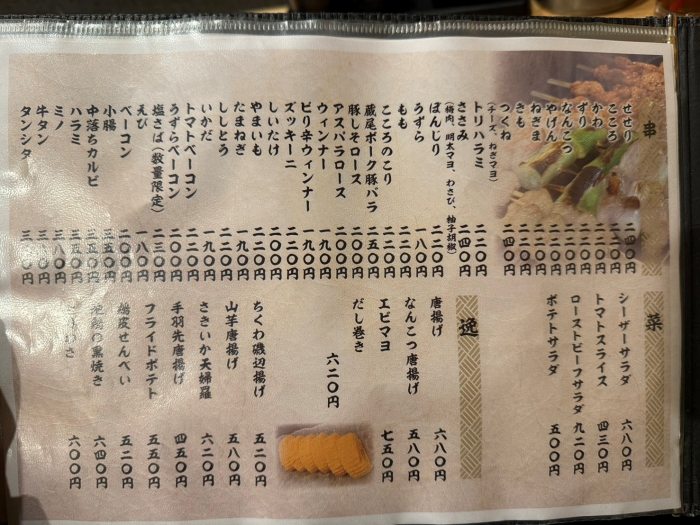 串
せせり 二四〇円
こころ 二二〇円
かわ 二二〇円
ずり 二二〇円
なんこつ 二二〇円
やげん 二二〇円
ねぎま 二二〇円
きも 二二〇円
つくね 二四〇円
(チーズ、ねぎマヨ)
トリハラミ 二二〇円
ささみ 二四〇円
(梅肉、明太マヨ、わさび、柚子胡椒)
ぼんじり 二二〇円
うずら 一八〇円
もも 二二〇円
こころのこり 二二〇円
蔵尾ポーク豚バラ 二五〇円
豚しそロース 二〇〇円
アスパラロース 二〇〇円
ウィンナー 一九〇円
ピリ辛ウィンナー 一九〇円
ズッキーニ 二〇〇円
しいたけ 二二〇円
やまいも 二二〇円
たまねぎ 二二〇円
ししとう 一九〇円
いかだ 一九〇円
トマトベーコン 二〇〇円
うずらベーコン 二〇〇円
塩さば(数量限定) 二三〇円
えび 一八〇円
ベーコン 二〇〇円
小腸 三五〇円
中落ちカルビ 三五〇円
ハラミ 三五〇円
ミノ 三八〇円
牛タン
タンシタ
菜
シーザーサラダ 六八〇円
トマトスライス 四三〇円
ローストビーフサラダ 九二〇円
ポテトサラダ 五〇〇円
逸
唐揚げ 六八〇円
なんこつ唐揚げ 五八〇円
エビマヨ 七五〇円
だし巻き 六二〇円
ちくわ磯辺揚げ 五二〇円
山芋唐揚げ 五八〇円
さきいか天婦羅 六二〇円
手羽先唐揚げ 四五〇円
フライドポテト 五五〇円
鶏皮せんべい 五二〇円
地鶏の炭焼き 六四〇円
六〇〇円